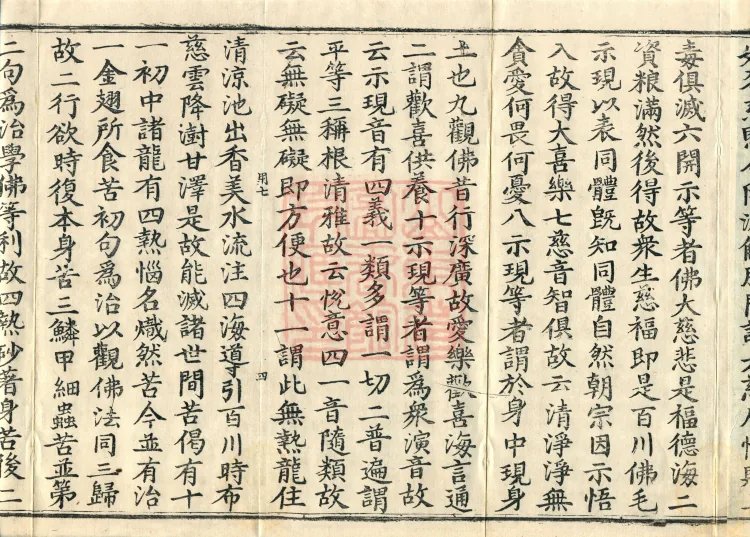 毒俱滅六開示等者佛大慈悲是福德海二
資粮滿然後得故衆生慈福即是百川佛毛
示現以表同體旣知同體自然朝宗因示悟
入故得大喜樂七慈音智俱故云清淨淨無
貪愛何畏何憂八示現等者謂於身中現身
土也九觀佛昔行深廣故愛樂歡喜海言通
二謂歡喜供養十示現等者謂爲衆演音故
云示現音有四義一類多謂一切二普遍謂
平等三稱根清雅故云悅意四一音隨類故
云無礙無礙即方便也十一謂此無熱龍住
用七
四
清涼池出香美水流注四海導引百川時布
慈雲降澍甘澤是故能滅諸世間苦偈有十
一初中諸龍有四熱惱名熾然苦今並有治
一金翅所食苦初句爲治以觀佛法同三歸
故二行欲時復本身苦三鱗甲細蟲苦並第
二句爲治學佛等利故四熱砂著身苦後二